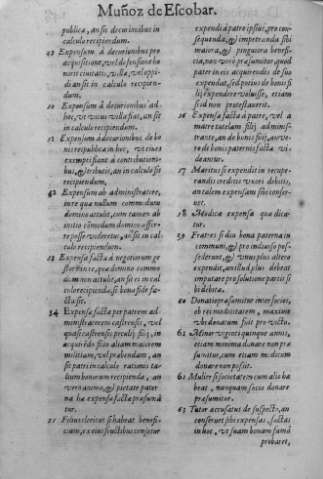 Muñoz de Escobar.
publica, an sit decurionibus in
calculo recipiendum.
Expensum à decurionibus pro
acquisitione, vel defensione ho
noris ciuitatis, villæ, vel oppi-
di an sit in calculo recipien-
dum.
Expensum à decurionibus ad-
hoc, ut vicus villa fiat, an sit
in calculo recipiendum.
Expensum à decurionibus de bo
nis reipublicæ in hoc, ut ciues
eximeret à contributioni-
bus, & tributis, an in calculo sit
recipiendum.
Expensum ab administratore,
in re qua nullum commodum
domino attulit, cum tamen ab
initio commodum domino affer-
re posse videretur, an sit in cal-
culo recipiendum.
Expensa facta à negotiorum ge
store in re, quæ domino commo
dum non attulit, an sit ei in cal
culo recipienda, si bona fide fa-
cta sit.
54 Expensa facta per patrem ad-
ministratorem castrensis, vel
quasi castrensis peculij filij, in
acquirendo filio aliam maiorem
militiam, vel præbendam, an
sit patri in calculo rationis ta-
lium bonorum recipienda, an
vero animo, & pietate pater
na hæc expensa facta præsuma
tur.
Filius clericus si habeat benefi-
cium, ex cuius fructibus teneatur
expendi à patre ipsius, pro con-
sequenda, & impetranda sibi
maiora, & pinguiora benefi-
cia, non verò præsumitur, quod
pater in eis acquirendis de suo
expendat, sed potius de bonis fi
lij expendere voluisse, etiam
si id non protestauerit.
56 Expensa facta à patre, vel a
matre tutelam filij admini-
strante, an de bonis suis, aut ve-
rò de bonis paternis facta vi-
deantur.
57 Maritus si expendit in recupe-
randis creditis vxori debitis,
an talem expensam sibi conser-
uet.
58 Modica expensa quæ dica-
tur.
59 Fratres si diu bona paterna in
communi, & pro indiuiso pos-
sederunt, & vnus plus altero
expendit, an illud plus debeat
imputare pro solutione partis si
bi debita.
60 Donatio præsumitur inter socios,
ob recreabilitatem, maxime
vbi donatum fuit pro victu.
61 Minor 25. quoquumque annis,
etiam minima donare non præ
sumitur, cum etiam modicum
donare non possit.
62 Mulier si societatem cum alio ha
beat, nunquam socio donare
præsumitur.
63 Tutor accusatus de suspecto, an
conseruet sibi expensas, factas
in hoc, vt suam bonam famã
probaret,